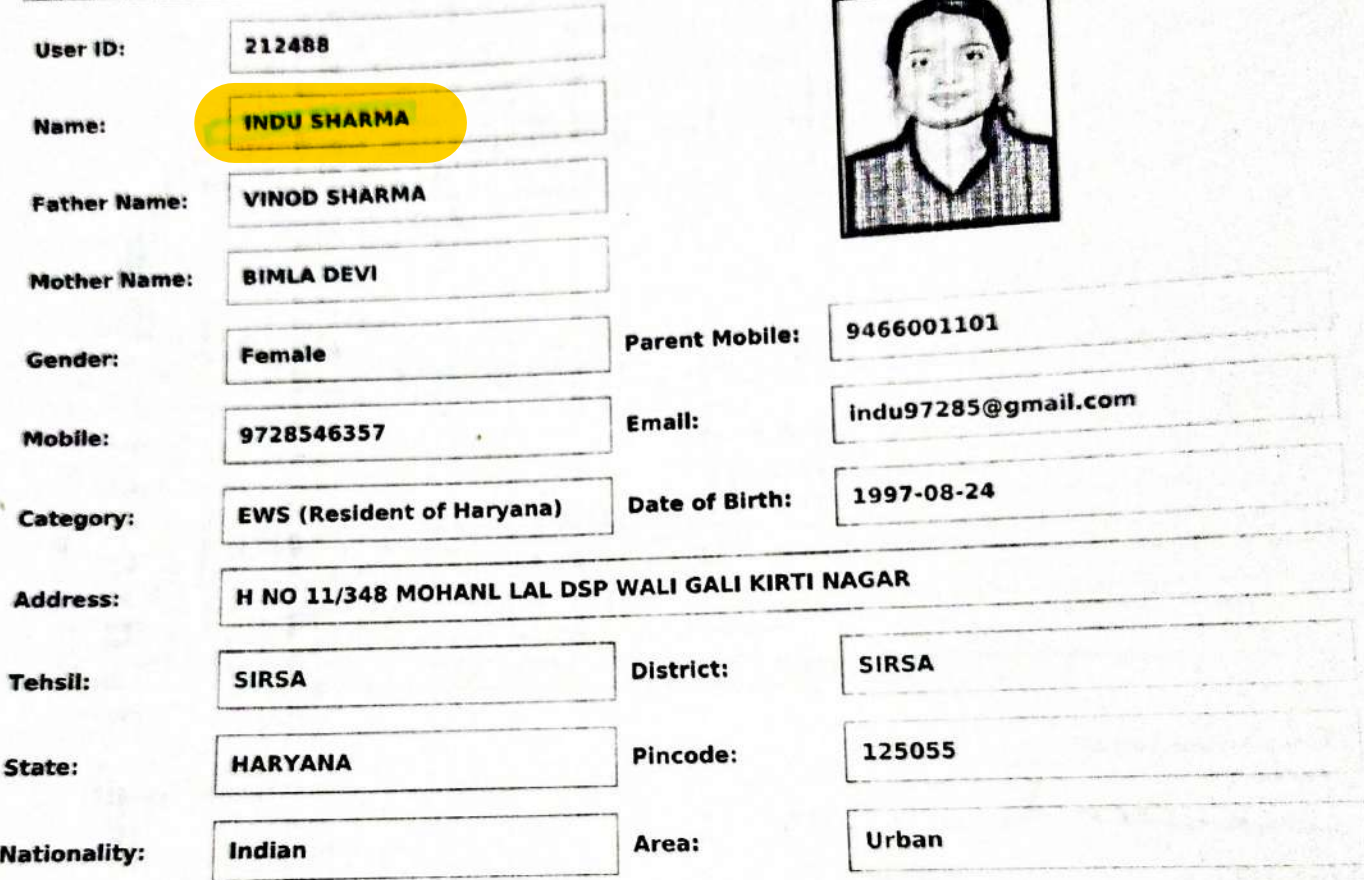 User ID: 212488
Name: INDU SHARMA
Father Name: VINOD SHARMA
Mother Name: BIMLA DEVI
Gender: Female Parent Mobile: 9466001101
Mobile: 9728546357 Email: indu97285@gmail.com
Category: EWS (Resident of Haryana) Date of Birth: 1997-08-24
Address: H NO 11/348 MOHANL LAL DSP WALI GALI KIRTI NAGAR
Tehsil: SIRSA District: SIRSA
State: HARYANA Pincode: 125055
Nationality: Indian Area: Urban